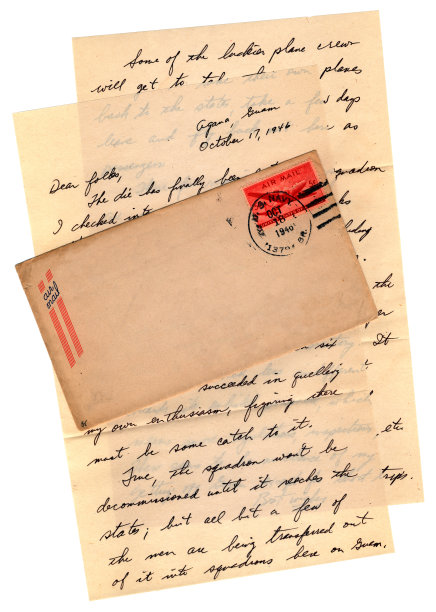 Some of the luckier plane crews
will get to take their own planes
back to the states, take a few days
leave and
as
Agana, Guam
October 17, 1946
Dear folks,
The die has finally been
squadron
I checked into
AIR MAIL
U.S. NAVY
OCT
18
1946
BR.
air
mail
the
in six
It
succeeded in quelling
my own enthusiasm, figuring there
must be some catch to it.
True, the squadron won't be
etc.
decommissioned until it reaches the
trips.
states; but all but a few of
the men are being transferred out
of it into squadrons here on Guam.